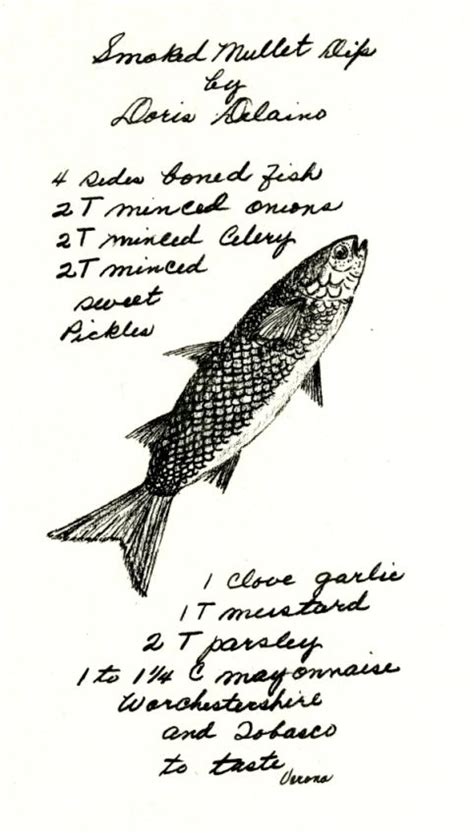 Smoked Mullet Dip
by
Doris Delaino
4 sides boned fish
2 T minced onions
2 T minced Celery
2 T minced
sweet
Pickles
1 clove garlic
1 T mustard
2 T parsley
1 to 1 1/4 C mayonnaise
Worchestershire
and Tobasco
to taste
Verona